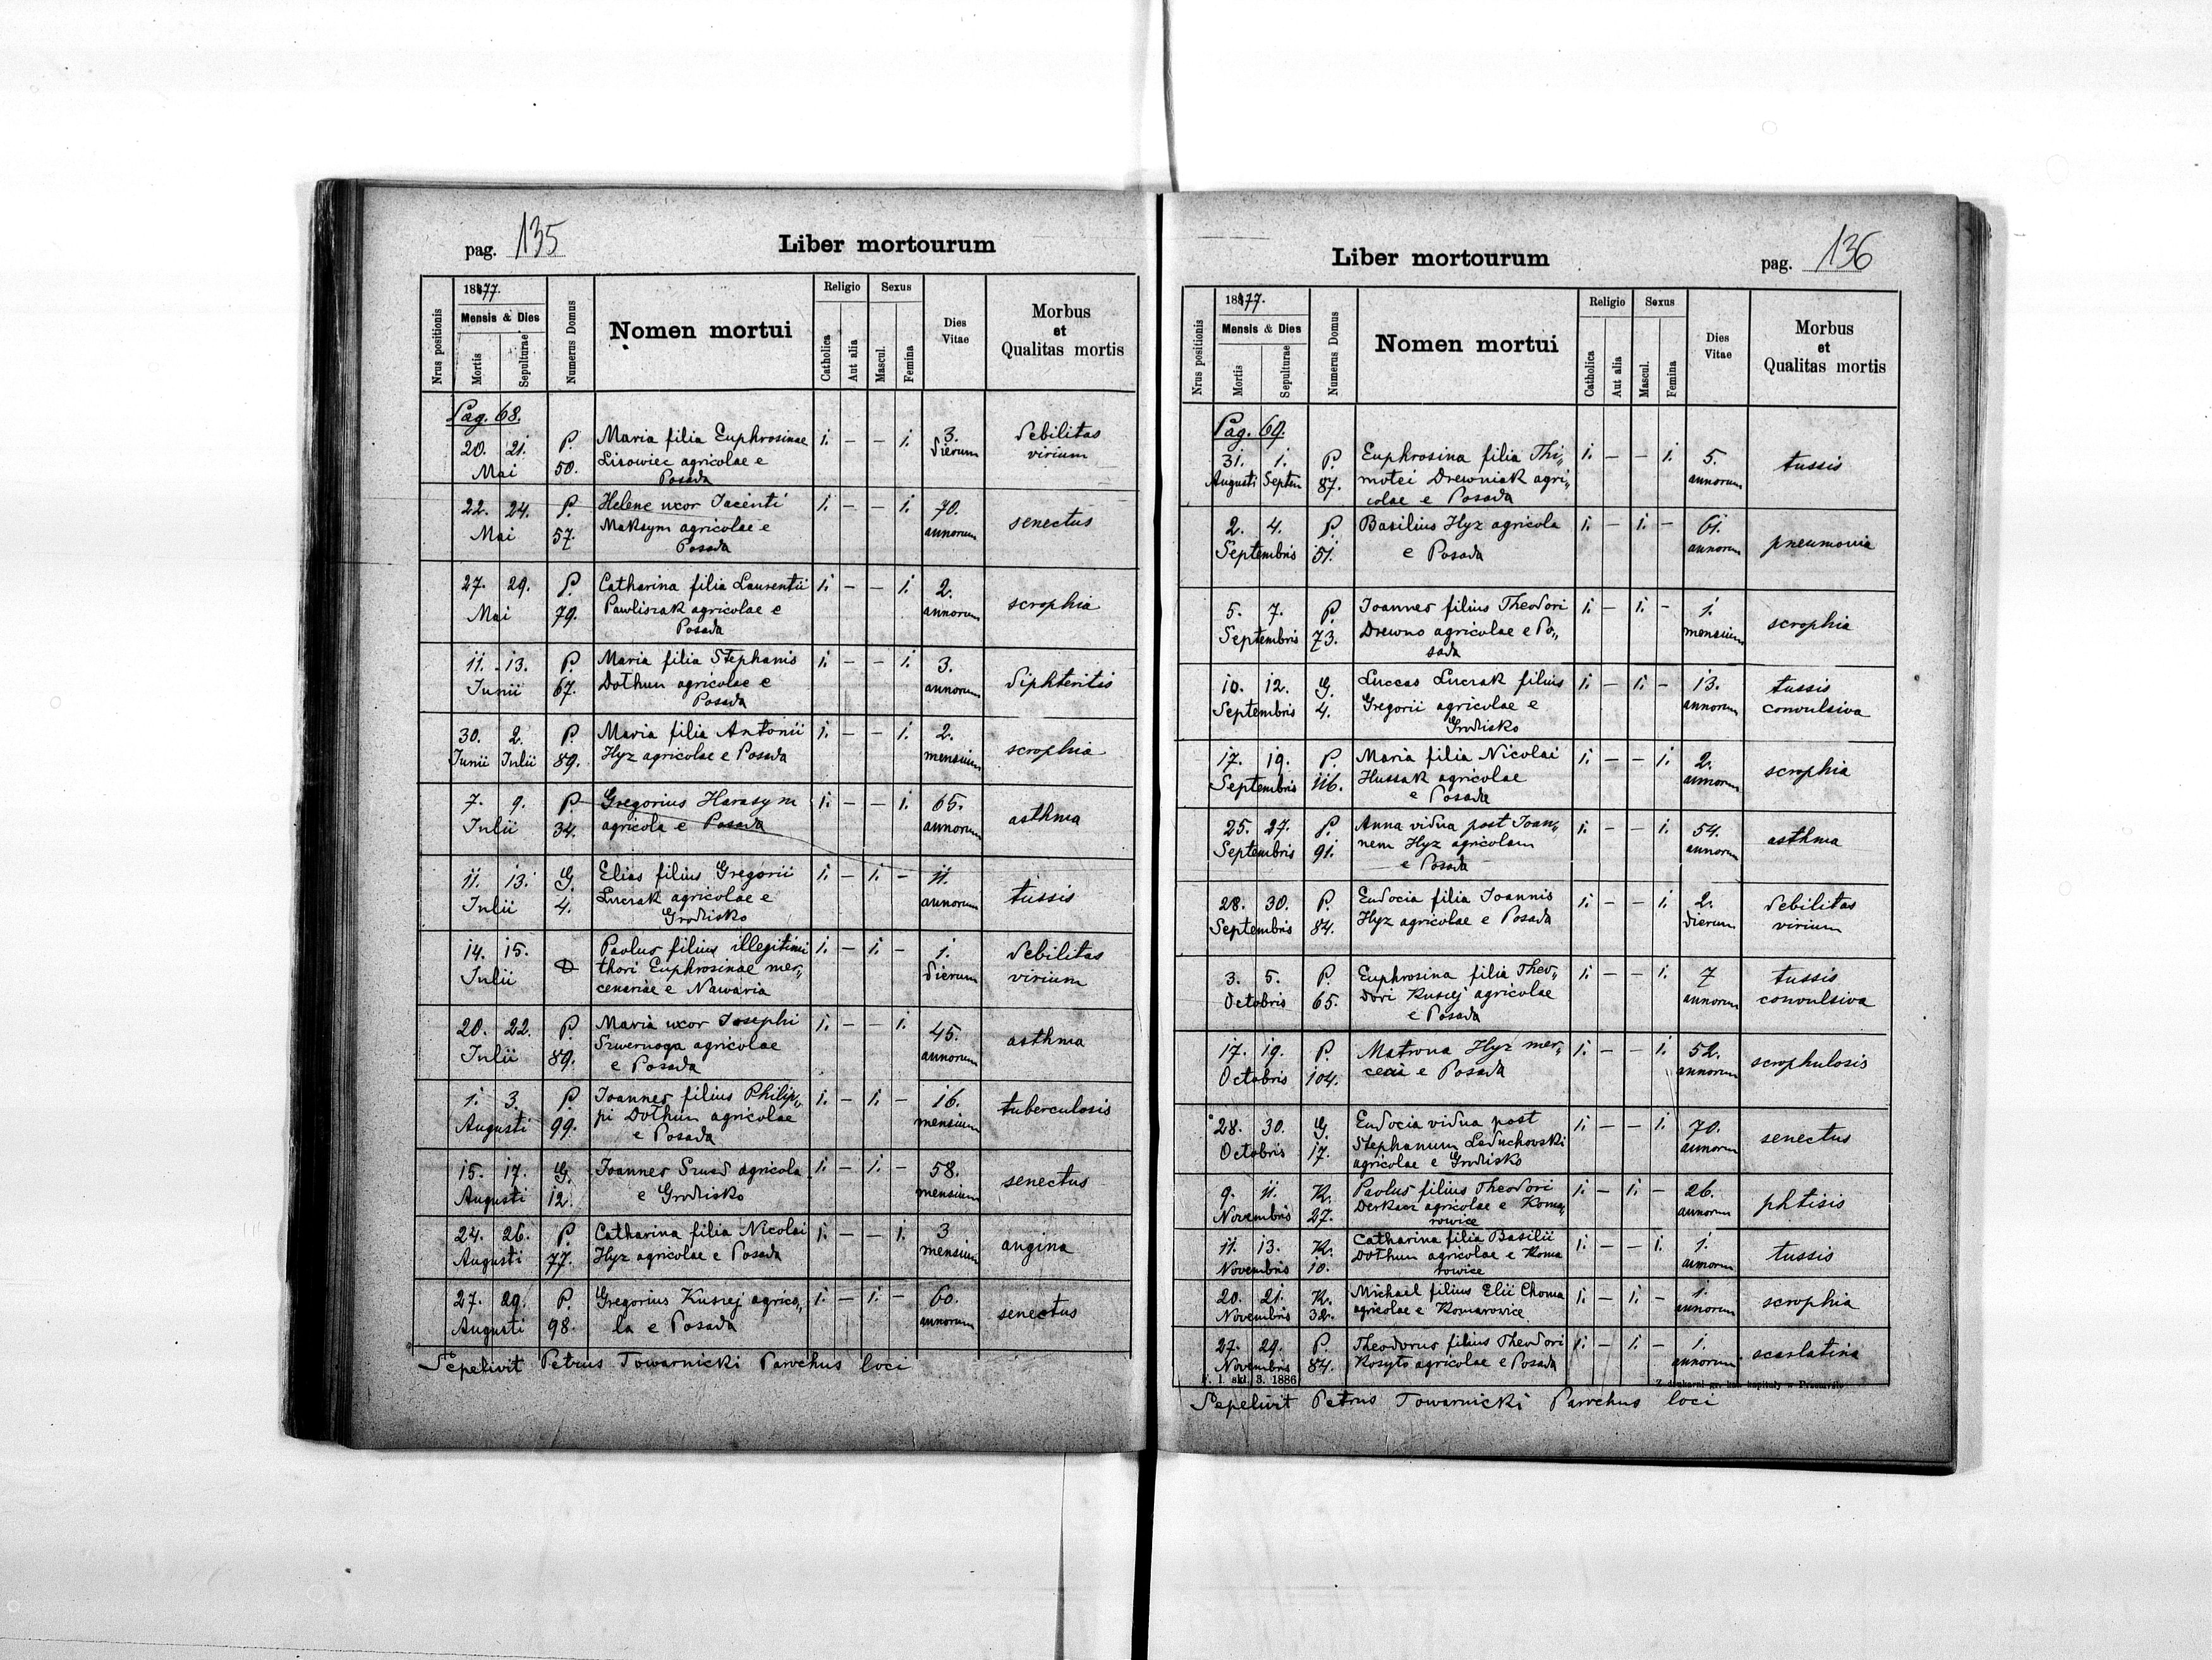 pag. 135
Liber mortourum
1877.
Mensis & Dies
Nrus positionis
Mortis
Sepulturae
Numerus Domus
Nomen mortui
Religio
Catholica
Aut alia
Sexus
Mascul.
Femina
Dies Vitae
Morbus et Qualitas mortis
Pag. 68.
20. 21. P. Maria filia Euphrosinae 1. — — 1. 3. debilitas
Mai 50. Lisowiec agricolae e dierum virium
Posada
22. 24. P. Helene uxor Jacenti 1. — — 1. 70. senectus
Mai 57. Maksym agricolae e annorum
Posada
27. 29. P. Catharina filia Laurentii 1. — — 1. 2. scrophia
Mai 79. Pawliszak agricolae e annorum
Posada
11. 13. P. Maria filia Stephanis 1. — — 1. 3. diphteritis
Junii 67. Dothun agricolae e annorum
Posada
30. 2. P. Maria filia Antonii 1. — — 1. 2. scrophia
Junii Julii 89. Hyz agricolae e Posada mensium
7. 9. P. Gregorius Harasym 1. — — 1. 65. asthma
Julii 34. agricola e Posada annorum
11. 13. G. Elias filius Gregorii 1. — 1. — 11. tussis
Julii 4. Luczak agricolae e annorum
Grodzisko
14. 15. Paolus filius illegitimi 1. — 1. — 1. debilitas
Julii thori Euphrosinae mer„ dierum virium
cenariae e Nawaria
20. 22. P. Maria uxor Josephi 1. — — 1. 45. asthma
Julii 89. Szwernoga agricolae annorum
e Posada
1. 3. P. Joannes filius Philip„ 1. — 1. — 16. tuberculosis
Augusti 99. pi Dothun agricolae mensium
e Posada
15. 17. G. Joannes Szwed agricola 1. — 1. — 58. senectus
Augusti 12. e Grodzisko mensium
24. 26. P. Catharina filia Nicolai 1. — — 1. 3 angina
Augusti 77. Hyz agricolae e Posada mensium
27. 29. P. Gregorius Kusiej agrico„ 1. — 1. — 60. senectus
Augusti 98. la e Posada annorum
Sepelivit Petrus Towarnicki Parochus loci
Liber mortourum
pag. 136
1877.
Mensis & Dies
Nrus positionis
Mortis
Sepulturae
Numerus Domus
Nomen mortui
Religio
Catholica
Aut alia
Sexus
Mascul.
Femina
Dies Vitae
Morbus et Qualitas mortis
Pag. 69.
31. 1. P. Euphrosina filia Thi„ 1. — — 1. 5. tussis
Augusti Septem 87. motei Drewniak agri„ annorum
colae e Posada
2. 4. P. Basilius Hyz agricola 1. — 1. — 61. pneumonia
Septembris 51. e Posada annorum
5. 7. P. Joannes filius Theodori 1. — 1. — 1. scrophia
Septembris 73. Drewno agricolae e Po„ mensium
sada
10. 12. G. Luccas Luczak filius 1. — 1. — 13. tussis
Septembris 4. Gregorii agricolae e annorum convulsiva
Grodzisko
17. 19. P. Maria filia Nicolai 1. — — 1. 2. scrophia
Septembris 116. Hussak agricolae annorum
e Posada
25. 27. P. Anna vidua post Joan„ 1. — — 1. 54. asthma
Septembris 91. nem Hyz agricolam annorum
e Posada
28. 30. P. Eudocia filia Joannis 1. — — 1. 2. debilitas
Septembris 84. Hyz agricolae e Posada dierum virium
3. 5. P. Euphrosina filia Theo„ 1. — — 1. 7 tussis
Octobris 65. dori Kusiej agricolae annorum convulsiva
e Posada
17. 19. P. Matrona Hyz mer„ 1. — — 1. 52. scrophulosis
Octobris 104. e Posada annorum
28. 30. G. Eudocia vidua post 1. — — 1. 70. senectus
Octobris 17. Stephanum Leduchovski annorum
agricolae e Grodzisko
9. 11. K. Paolus filius Theodori 1. — 1. — 26. phtisis
Novembris 27. Derkacz agricolae e Koma„ annorum
rowice
11. 13. K. Catharina filia Basilii 1. — — 1. 1. tussis
Novembris 10. Dothun agricolae e Koma annorum
rowice
20. 21. K. Michael filius Elii Choma 1. — 1. — 1. scrophia
Novembris 32. agricolae e Komarovice annorum
27. 29. P. Theodorus filius Theodori 1. — 1. — 1. scarlatina
Novembris 84. Kosyto agricolae e Posada annorum
1. skł. 3. 1886
Z drukarni gr. kat. kapituły w Przemyślu
Sepelivit Petrus Towarnicki Parochus loci